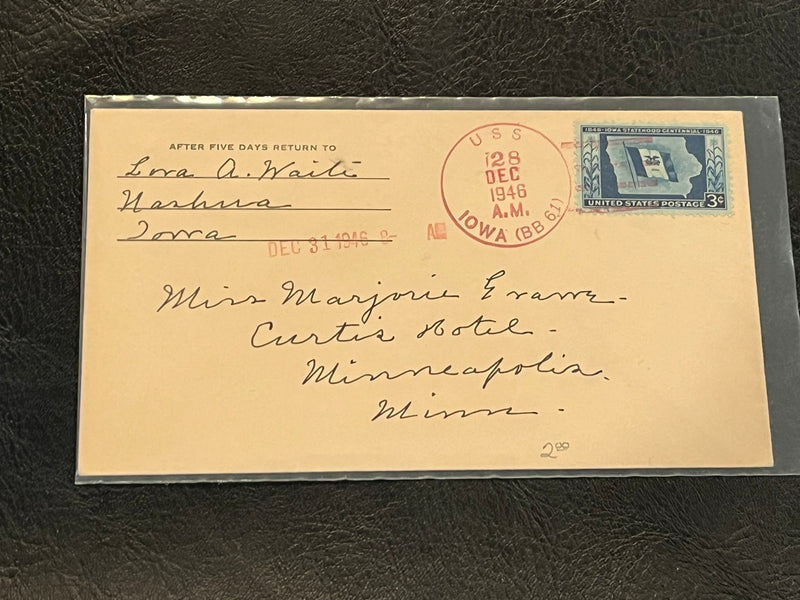 AFTER FIVE DAYS RETURN TO
Lora A. Waite
Nashua
Iowa
DEC 31 1946 8-
A
USS
28
DEC
1946
A.M.
IOWA (BB 61)
1846-IOWA STATEHOOD CENTENNIAL-1946
UNITED STATES POSTAGE 3¢
Miss Marjorie
Curtis Hotel-
Minneapolis.
Minn-
2.00